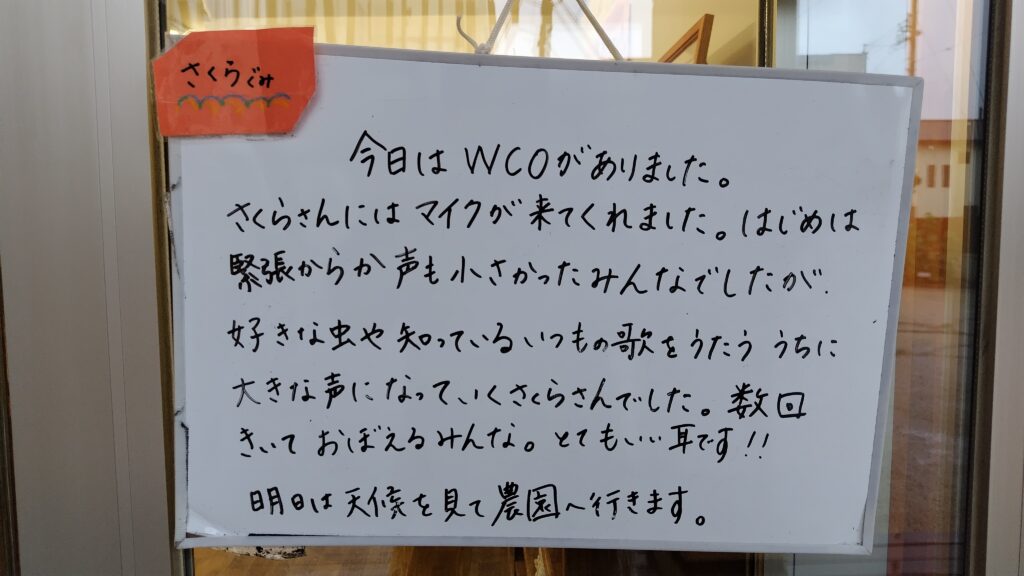 さくらぐみ
今日はWCOがありました。
さくらさんにはマイクが来てくれました。はじめは
緊張からか声も小さかったみんなでしたが、
好きな虫や知っているいつもの歌をうたううちに
大きな声になっていくさくらさんでした。数回
きいておぼえるみんな。とてもいい耳です!!
明日は天候を見て農園へ行きます。